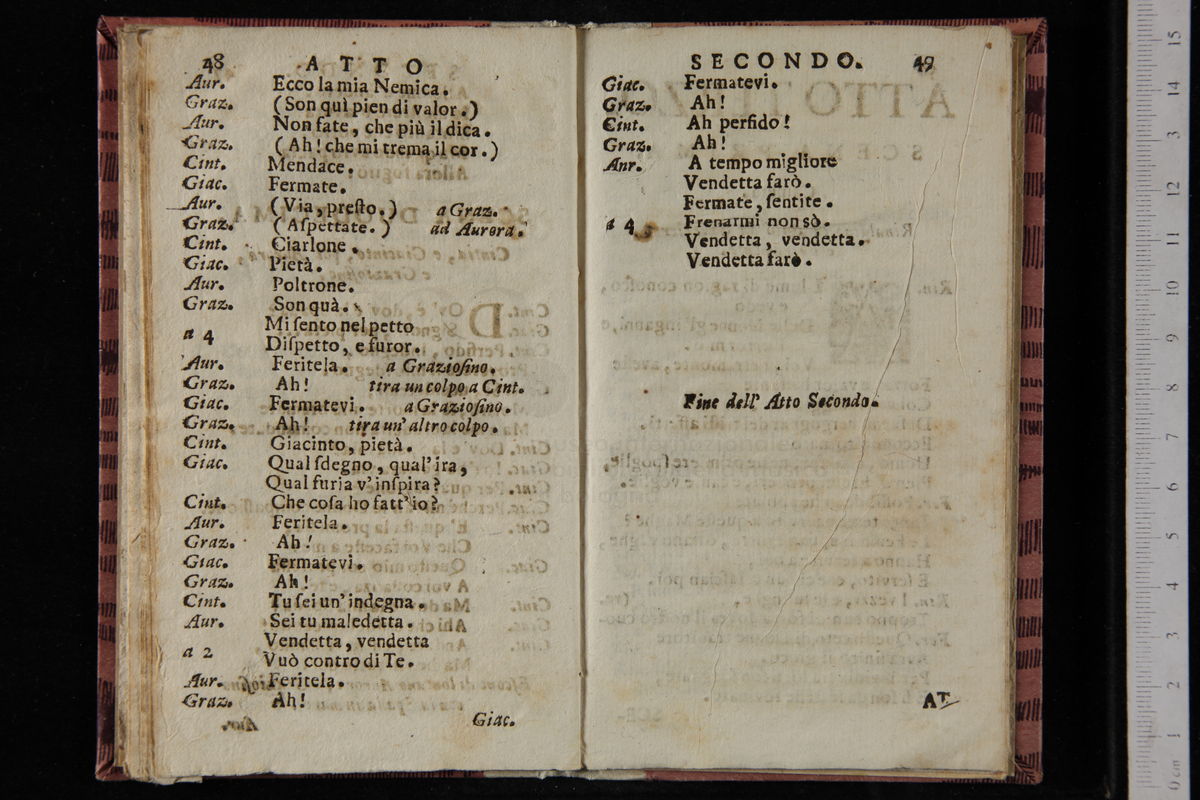 48 ATTO
Aur. Ecco la mia Nemica.
Graz. (Son quì pien di valor.)
Aur. Non fate, che più il dica.
Graz. (Ah! che mi trema il cor.)
Cint. Mendace.
Giac. Fermate.
Aur. (Via, preſto.) a Graz.
Graz. (Aſpettate.) ad Aurora.
Cint. Ciarlone.
Giac. Pietà.
Aur. Poltrone.
Graz. Son quà.
a 4 Mi ſento nel petto
Diſpetto, e furor.
Aur. Feritela. a Grazioſino.
Graz. Ah! tira un colpo a Cint.
Giac. Fermatevi. a Grazioſino.
Graz. Ah! tira un' altro colpo.
Cint. Giacinto, pietà.
Giac. Qual ſdegno, qual' ira,
Qual furia v' inſpira?
Cint. Che coſa ho fatt' io?
Aur. Feritela.
Graz. Ah!
Giac. Fermatevi.
Graz. Ah!
Cint. Tu ſei un' indegna.
Aur. Sei tu maledetta.
a 2 Vendetta, vendetta
Vuò contro di Te.
Aur. Feritela.
Graz. Ah!
Giac.
SECONDO. 49
Giac. Fermatevi.
Graz. Ah!
Cint. Ah perfido!
Graz. Ah!
Anr. A tempo migliore
Vendetta farò.
Fermate, ſentite.
a 4 Frenarmi non sò.
Vendetta, vendetta.
Vendetta farò.
Fine dell' Atto Secondo.
AT-
15
14
13
12
11
10
9
8
7
6
5
4
3
2
1
0 cm